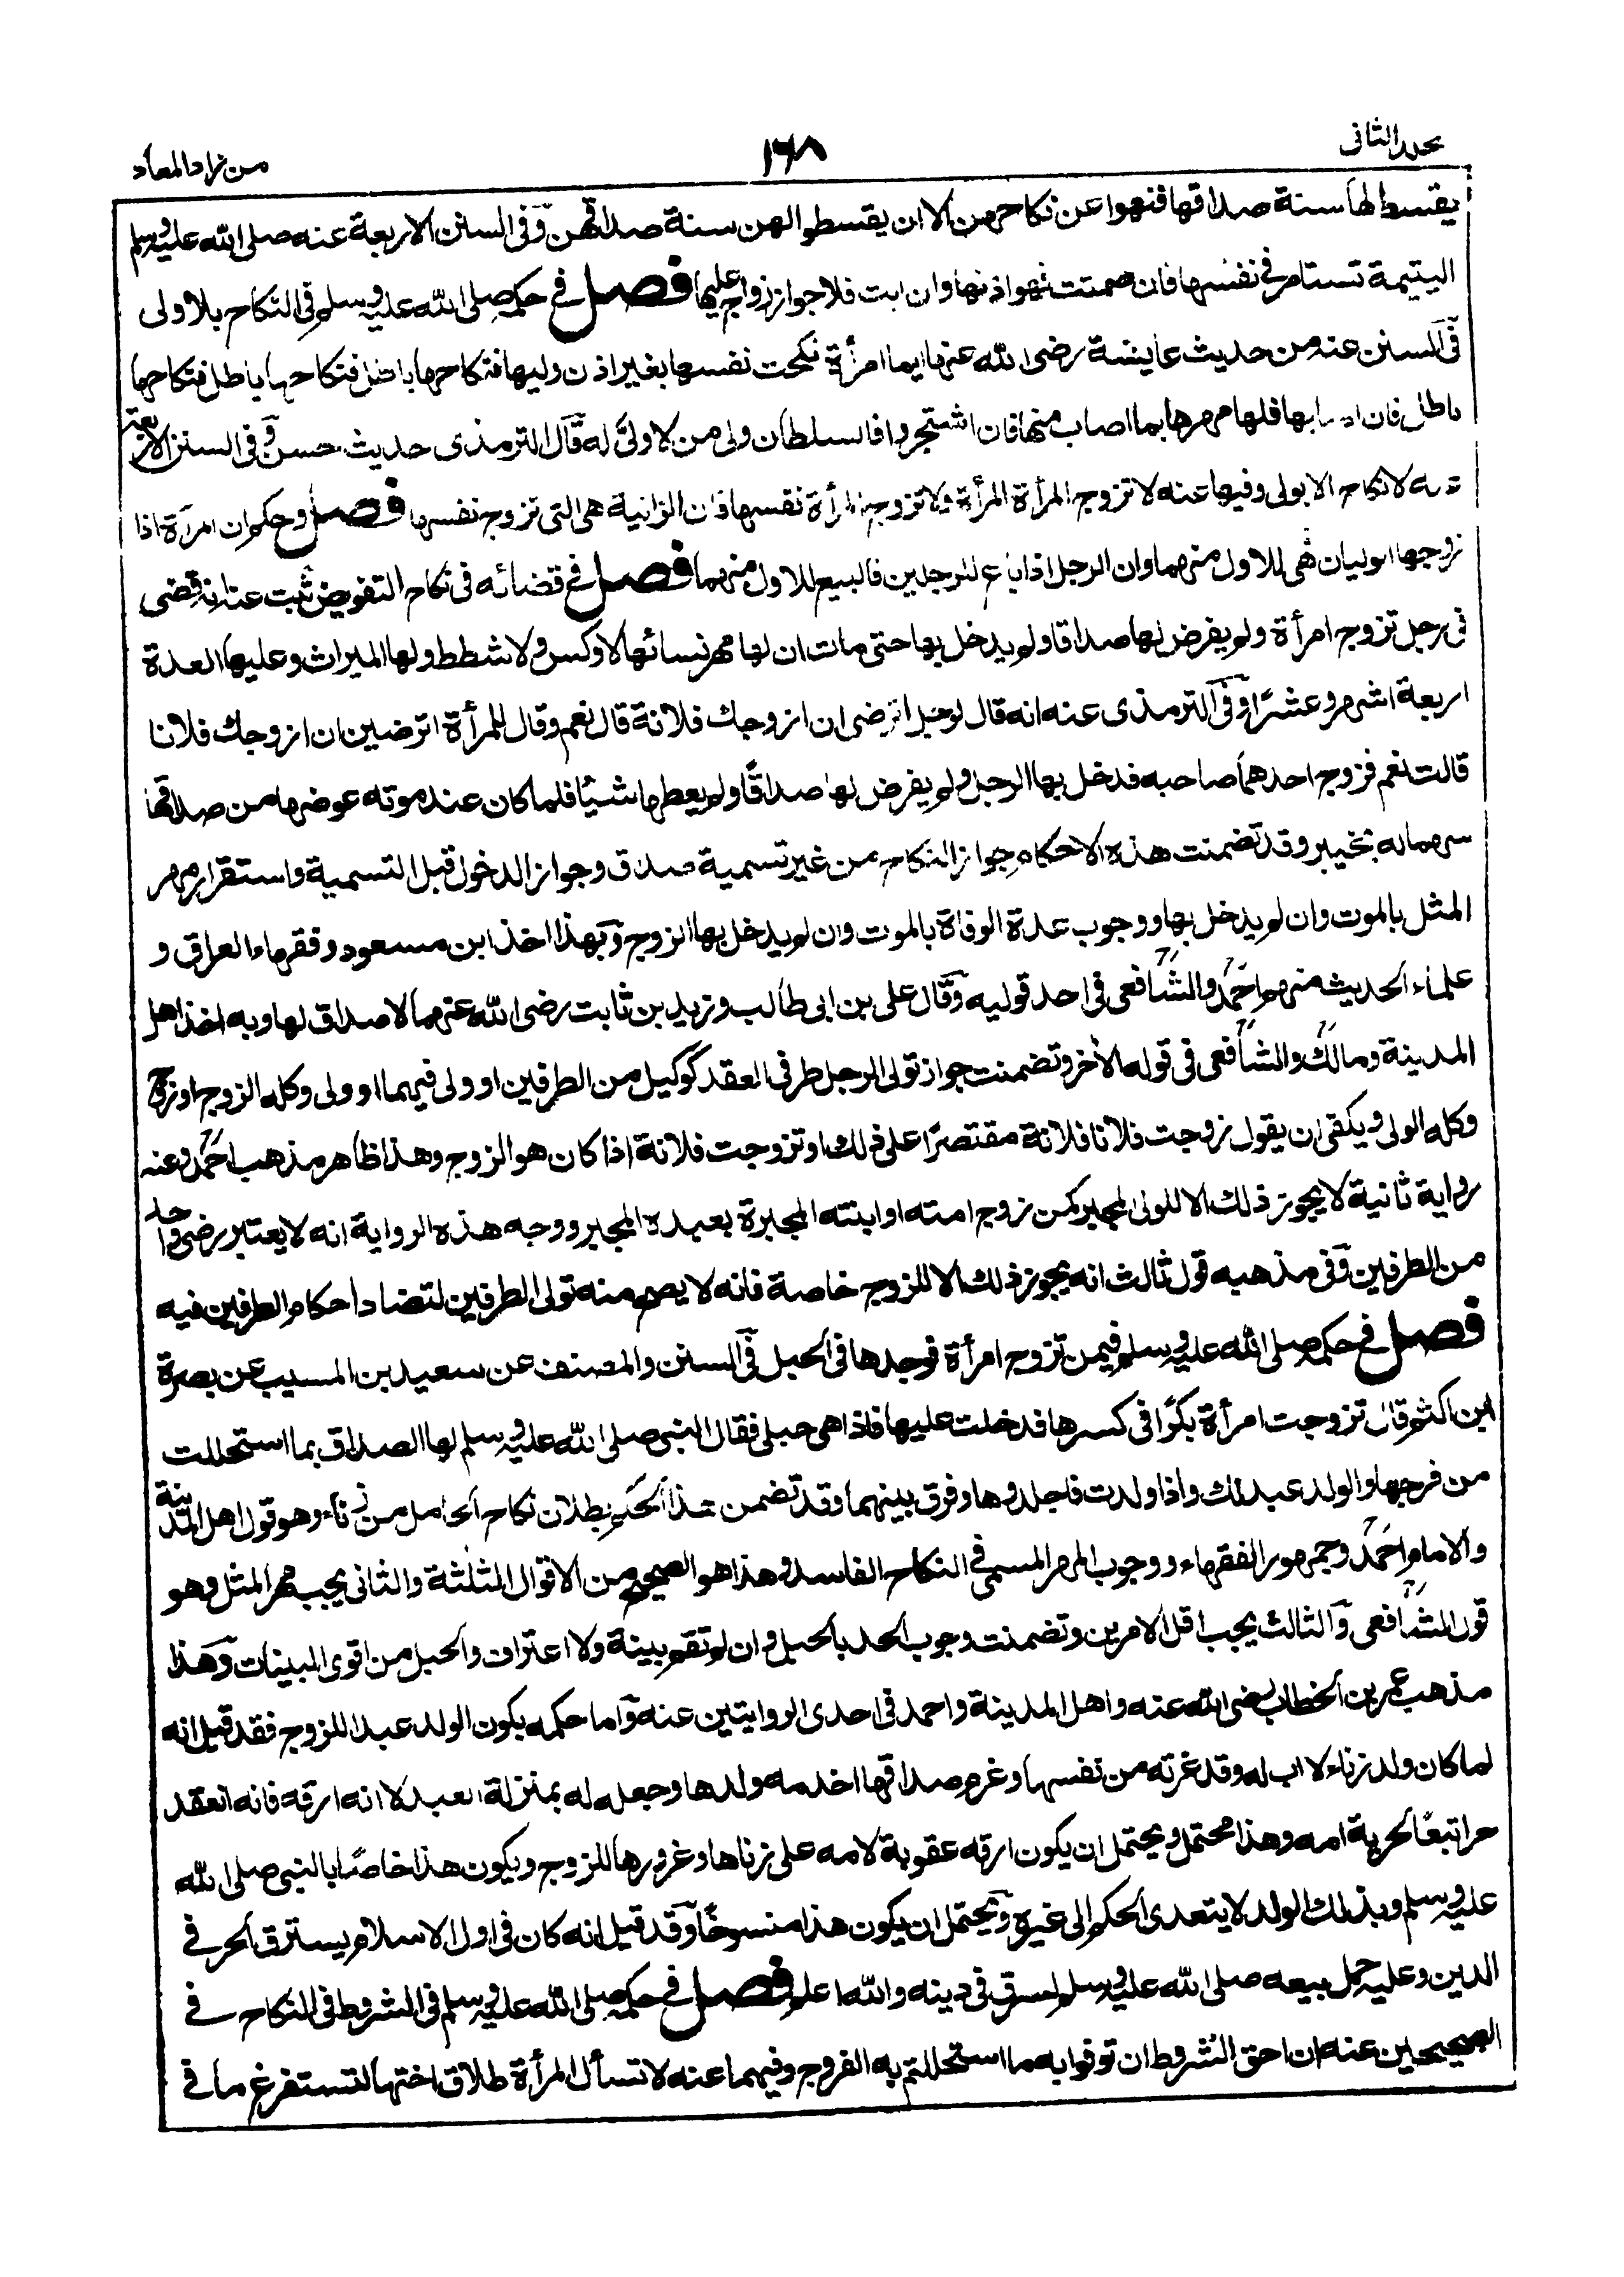 مجلد الثانى
١٦٨
من زاد المعاد
يقسطوا لها سنة صداقها فنهوا عن نكاحهن الا ان يقسطوا لهن سنة صداقهن وفى السنن الاربعة عنه صلى الله عليه وسلم
اليتيمة تستامر فى نفسها فان صمتت فهو اذنها وان ابت فلا جواز زواج عليها فصل فى حكمه صلى الله عليه وسلم فى النكاح بلا ولى
فى السنن عنه من حديث عايشة رضى الله عنها ايما امرأة نكحت نفسها بغير اذن وليها فنكاحها باطل فنكاحها باطل فنكاحها
باطل فان اصابها فلها مهرها بما اصاب منها فان اشتجروا فالسلطان ولى من لا ولى له قال الترمذى حديث حسن وفى السنن الاربعة
عنه لا نكاح الا بولى وفيها عنه لا تزوج المرأة المرأة ولا تزوج المرأة نفسها فان الزانية هى التى تزوج نفسها فصل وحكم ان امرأة اذا
زوجها الوليان فهى للاول منهما وان الرجل اذا باع لرجلين فالبيع للاول منهما فصل فى قضائه فى نكاح التفويض ثبت عنه انه قضى
فى رجل تزوج امرأة ولم يفرض لها صداقا ولم يدخل بها حتى مات ان لها مهر نسائها لا وكس ولا شطط ولها الميراث وعليها العدة
اربعة اشهر وعشرًا وفى الترمذى عنه انه قال لرجل اترضى ان ازوجك فلانة قال نعم وقال للمرأة اترضين ان ازوجك فلانا
قالت نعم فزوج احدهما صاحبه فدخل بها الرجل ولم يفرض لها صداقًا ولم يعطها شيئًا فلما كان عند موته عوضها من صداقها
سهما له بخيبر وقد تضمنت هذه الاحكام جواز النكاح من غير تسمية صداق وجواز الدخول قبل التسمية واستقرار مهر
المثل بالموت وان لم يدخل بها ووجوب عدة الوفاة بالموت وان لم يدخل بها الزوج وبهذا اخذ ابن مسعود وفقهاء العراق و
علماء الحديث منهم احمد والشافعى فى احد قوليه وقال على بن ابى طالب وزيد بن ثابت رضى الله عنهما لا صداق لها وبه اخذ اهل
المدينة ومالك والشافعى فى قوله الأخر وتضمنت جواز تولى الرجل طرفى العقد كوكيل من الطرفين او ولى فيهما او ولى وكله الزوج او زوج
وكله الولى ويكفى ان يقول زوجت فلانا فلانة مقتصرًا على ذلك او تزوجت فلانة اذا كان هو الزوج وهذا ظاهر مذهب احمد وعنه
رواية ثانية لا يجوز ذلك الا للولى المجبر كمن زوج امته او ابنته المجبرة بعبده المجبر ووجه هذه الرواية انه لا يعتبر رضى واحد
من الطرفين وفى مذهبه قول ثالث انه يجوز ذلك الا للزوج خاصة فانه لا يصح منه تولى الطرفين لتضاد احكام الطرفين فيه
فصل فى حكمه صلى الله عليه وسلم فيمن تزوج امرأة فوجدها فى الحبل فى السنن والمصنف عن سعيد بن المسيب عن بصرة
ابن اكثم قال تزوجت امرأة بكرًا فى كسرها فدخلت عليها فاذا هى حبلى فقال النبى صلى الله عليه وسلم لها الصداق بما استحللت
من فرجها والولد عبد لك واذا ولدت فاجلدوها وفرق بينهما وقد تضمن هذا الحكم بطلان نكاح الحامل من زناء وهو قول اهل المدينة
والامام احمد وجمهور الفقهاء ووجوب المهر المسمى فى النكاح الفاسد وهذا هو الصحيح من الاقوال الثلثة والثانى يجب مهر المثل وهو
قول الشافعى والثالث يجب اقل الامرين وتضمنت وجوب الحد بالحبل وان لم تقم بينة ولا اعتراف والحبل من اقوى البينات وهذا
مذهب عمر بن الخطاب رضى الله عنه واهل المدينة واحمد فى احدى الروايتين عنه واما حكمه بكون الولد عبدا للزوج فقد قيل انه
لما كان ولد زناء لا اب له وقد غرته من نفسها وغرم صداقها اخدمه ولدها وجعله له بمنزلة العبد لا انه ارقه فانه انعقد
حرا تبعًا لحرية امه وهذا محتمل ويحتمل ان يكون ارقه عقوبة لامه على زناها وغرورها للزوج ويكون هذا خاصًا بالنبى صلى الله
عليه وسلم وبذلك الولد لا يتعدى الحكم الى غيره ويحتمل ان يكون هذا منسوخًا وقد قيل انه كان فى اول الاسلام يسترق الحر فى
الدين وعليه حمل بيعه صلى الله عليه وسلم لسرق فى دينه والله اعلم فصل فى حكمه صلى الله عليه وسلم فى الشروط فى النكاح فى
الصحيحين عنه ان احق الشروط ان توفوا به ما استحللتم به الفروج وفيهما عنه لا تسأل المرأة طلاق اختها لتستفرغ ما فى